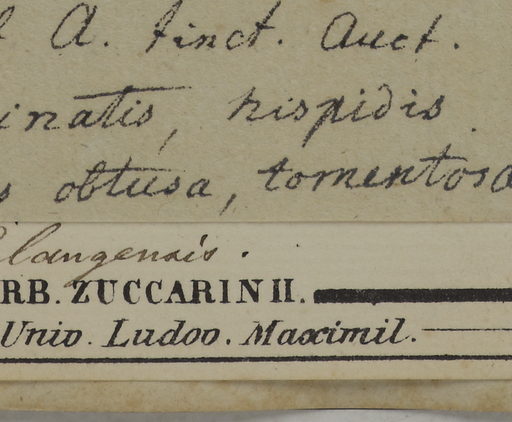 A. tinct. Auct.
inatis, hispidis
s obtusa, tomentosa
langensis.
RB. ZUCCARINII.
Univ. Ludov. Maximil.